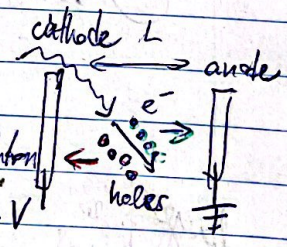 cathode L
anode
e⁻
holes
V